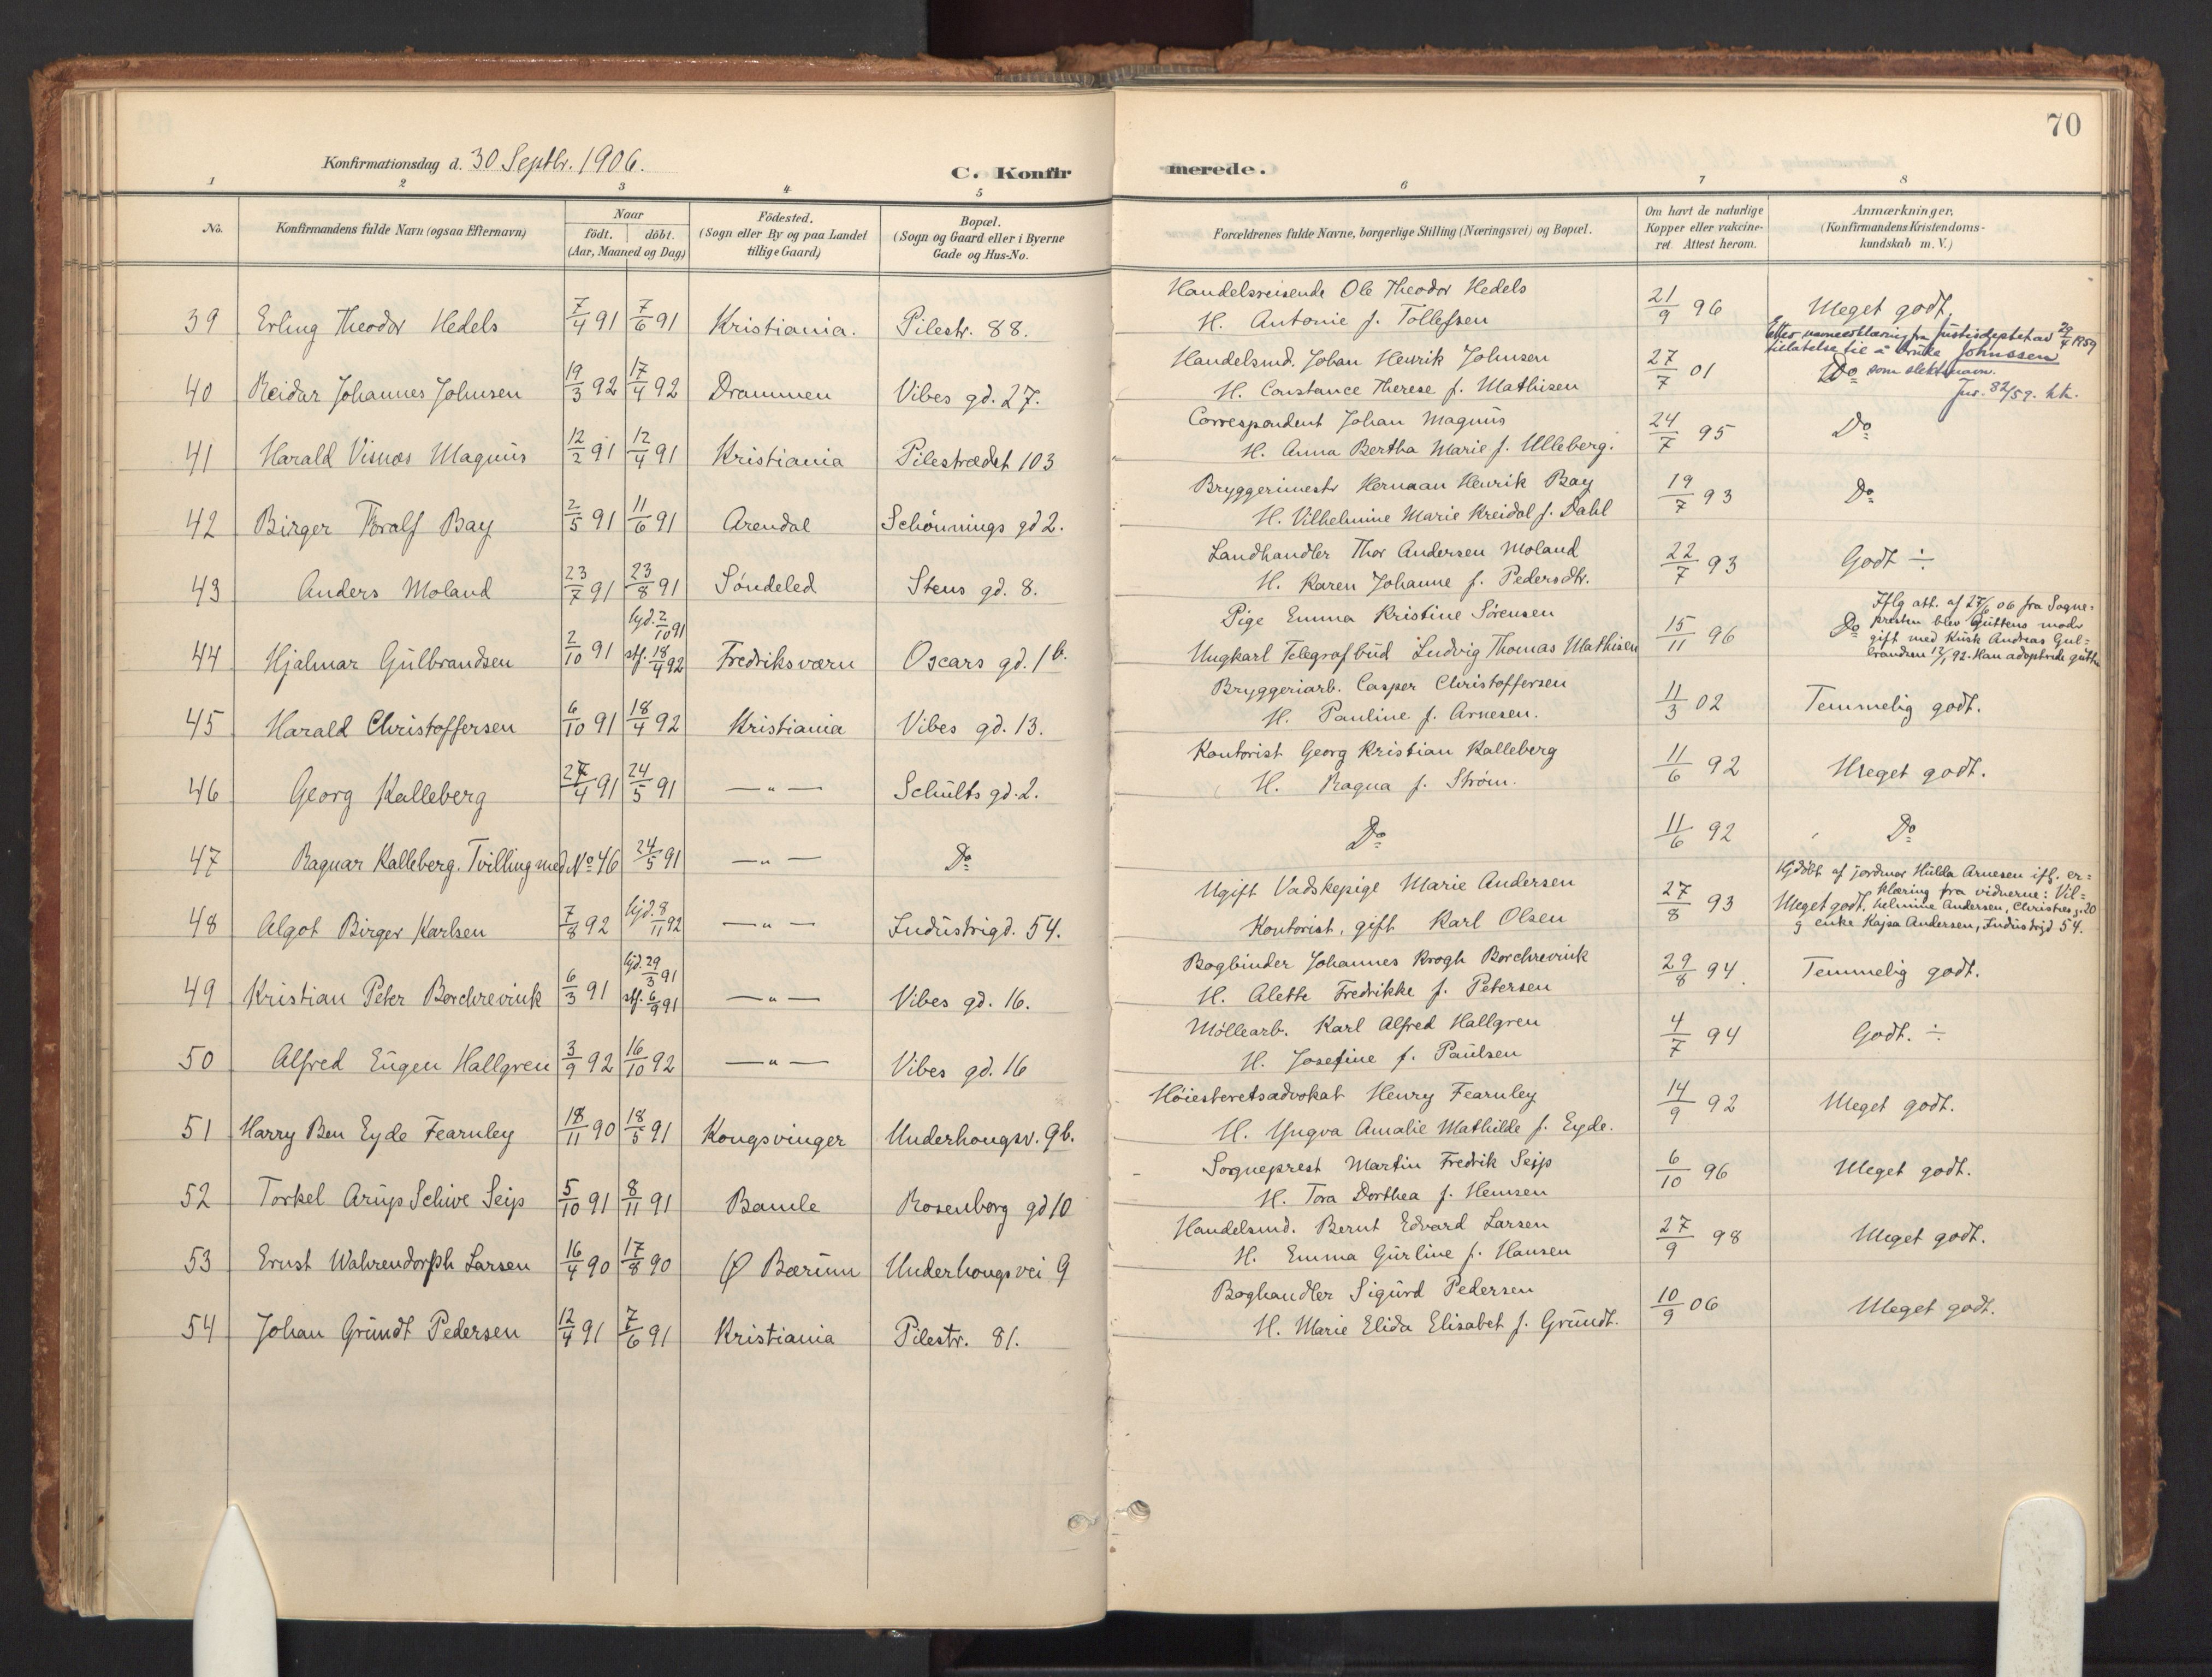 70
Konfirmationsdag d. 30 Septbr. 1906.
C. Konfirmerede.
1 2 3 4 5 6 7 8
No.
Konfirmandens fulde Navn (ogsaa Efternavn)
Naar
födt. döbt.
(Aar, Maaned og Dag)
Födested.
(Sogn eller By og paa Landet
tillige Gaard)
Bopæl.
(Sogn og Gaard eller i Byerne
Gade og Hus-No.
Forældrenes fulde Navne, borgerlige Stilling (Næringsvei) og Bopæl.
Om havt de naturlige
Kopper eller vakcine-
ret. Attest herom.
Anmærkninger.
(Konfirmandens Kristendoms-
kundskab m. V.)
39 Erling Theodor Hedels 7/4 91 7/6 91 Kristiania. Pilestr. 88.
Handelsreisende Ole Theodor Hedels
H. Antonie f. Tollefsen
21/9 96 Meget godt.
Etter navneerklæring fra Justisdeptet av 29/4 1959
tillatelse til å bruke Johnssen
som slektsnavn.
Jnr. 82/59. kk.
40 Reidar Johannes Johnsen 19/3 92 17/4 92 Drammen Vibes gd. 27.
Handelsmd. Johan Henrik Johnsen
H. Constance Therese f. Mathisen
27/7 01 Do
41 Harald Visnæs Magnus 12/2 91 12/4 91 Kristiania Pilestrædet 103
Correspondent Johan Magnus
H. Anna Bertha Marie f. Ulleberg.
24/7 95 Do
42 Birger Toralf Bay 2/5 91 11/6 91 Arendal Schönnings gd 2.
Bryggerimestr Herman Henrik Bay
H. Vilhelmine Marie Kreidal f. Dahl
19/7 93 Do
43 Anders Moland 23/7 91 23/8 91 Söndeled Stens gd. 8.
Landhandler Thor Andersen Moland
H. Karen Johanne f. Pedersdtr.
22/7 93 Godt ÷
44 Hjalmar Gulbrandsen 2/10 91 hjd. 2/10 91 stf. 18/4 92 Fredriksværn Oscars gd. 1 b.
Pige Emma Kristine Sörensen
Ungkarl Telegrafbud Ludvig Thomas Mathisen
15/11 96 Do
Iflg att. af 27/6 06 fra Sogne-
presten blev guttens moder
gift med Kusk Andreas Gul-
brandsen 12/1 92. Han adopterede gutten
45 Harald Christoffersen 6/10 91 18/4 92 Kristiania Vibes gd. 13.
Bryggeriarb. Casper Christoffersen
H. Pauline f. Arnesen.
11/3 02 Temmelig godt.
46 Georg Kalleberg 27/4 91 24/5 91 — " — Schults gd. 2.
Kontorist Georg Kristian Kalleberg
H. Ragna f. Ström.
11/6 92 Meget godt.
47 Ragnar Kalleberg. Tvilling med No 46 24/5 91 — " — Do
Do
11/6 92 Do
48 Algot Birger Karlsen 7/8 92 hjd. 8/11 92 — " — Industrigd. 54.
Ugift Vadskepige Marie Andersen
Kontorist, gift Karl Olsen
27/8 93 Meget godt.
Hjdöbt af jordmor Hulda Arnesen ifl. er-
klæring fra vidnerne: Vil-
helmine Andersen, Christies g. 20
og enke Kajsa Andersen, Industrigd 54.
49 Kristian Peter Borchrevink 6/3 91 hjd. 29/3 91 stf. 6/9 91 — " — Vibes gd. 16.
Bogbinder Johannes Krogh Borchrevink
H. Alette Fredrikke f. Petersen
29/8 94. Temmelig godt.
50 Alfred Eugen Hallgren 3/9 92 16/10 92 — " — Vibes gd. 16
Möllearb. Karl Alfred Hallgren
H. Josefine f. Paulsen
4/7 94 Godt. ÷
51 Harry Ben Eyde Fearnley 18/11 90 18/5 91 Kongsvinger Underhougsv. 9 b.
Höiesteretsadvokat Henry Fearnley
H. Yngva Amalie Mathilde f. Eyde.
14/9 92 Meget godt.
52 Torkel Arup Schive Seip 5/10 91 8/11 91 Bamle Rosenborg gd 10
Sogneprest Martin Fredrik Seip
H. Tora Dorthea f. Hemsen
6/10 96 Meget godt.
53 Ernst Wahrendorph Larsen 16/4 90 17/8 90 Ø Bærum Underhougsvei 9
Handelsmd. Bernt Edvard Larsen
H. Emma Gurline f. Hansen
27/9 98 Meget godt.
54 Johan Grundt Pedersen 12/4 91 7/6 91 Kristiania Pilestr. 81.
Boghandler Sigurd Pedersen
H. Marie Elida Elisabet f. Grundt.
10/9 06 Meget godt.